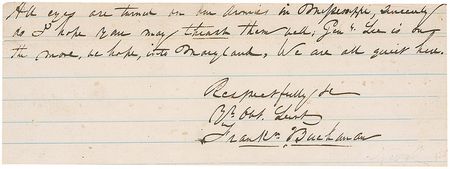 All eyes are turned on our armies in Mississippi, sincerely
do I hope you may thrash them well; Genl. Lee is on
the move, we hope, into Maryland, We are all quiet here.
Respectfully &c
Yr. Obt. Servt
Frankn. Buchanan